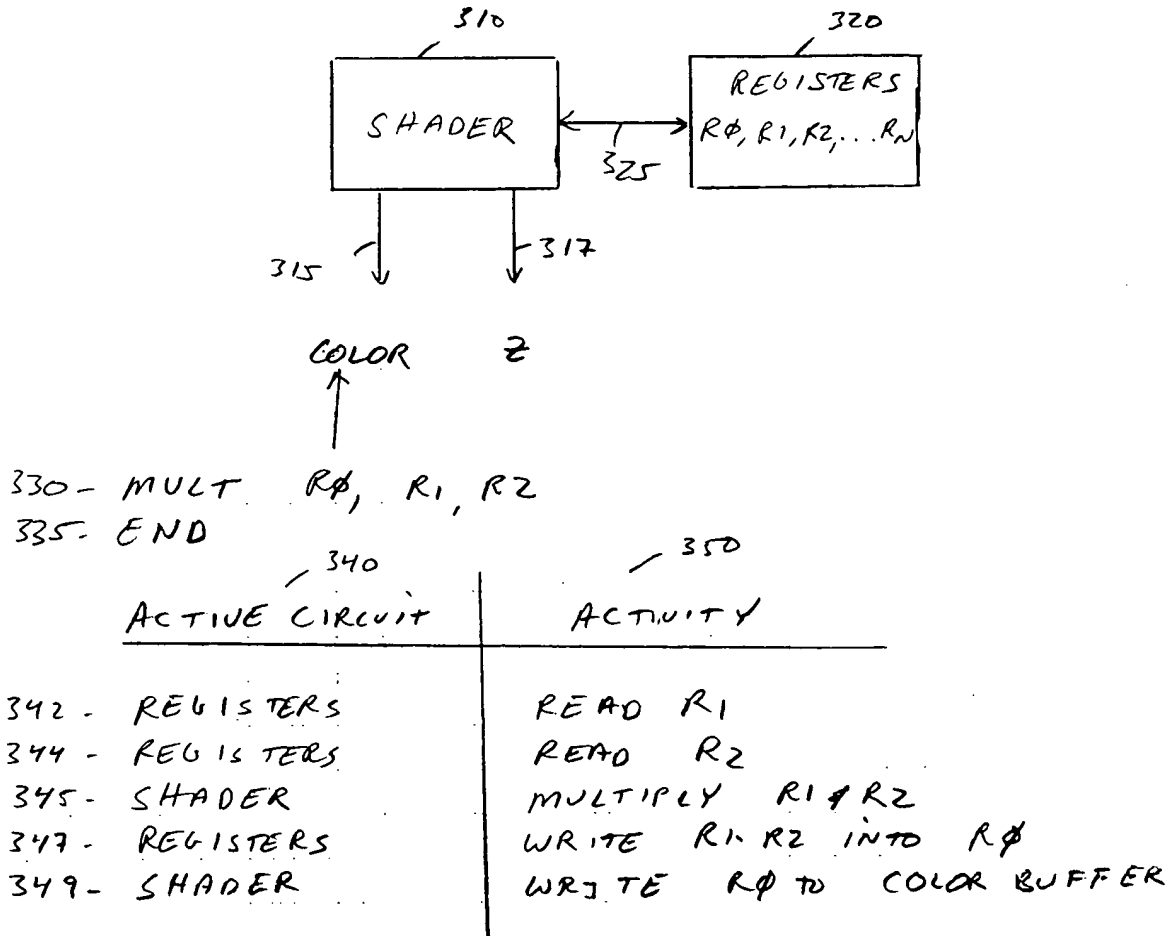 310
320
SHADER
REGISTERS
RØ, R1, R2, ... RN
325
315
317
COLOR Z
330- MULT RØ, R1, R2
335- END
340
350
ACTIVE CIRCUIT ACTIVITY
342- REGISTERS READ R1
344- REGISTERS READ R2
345- SHADER MULTIPLY R1 & R2
347- REGISTERS WRITE R1·R2 INTO RØ
349- SHADER WRITE RØ TO COLOR BUFFER